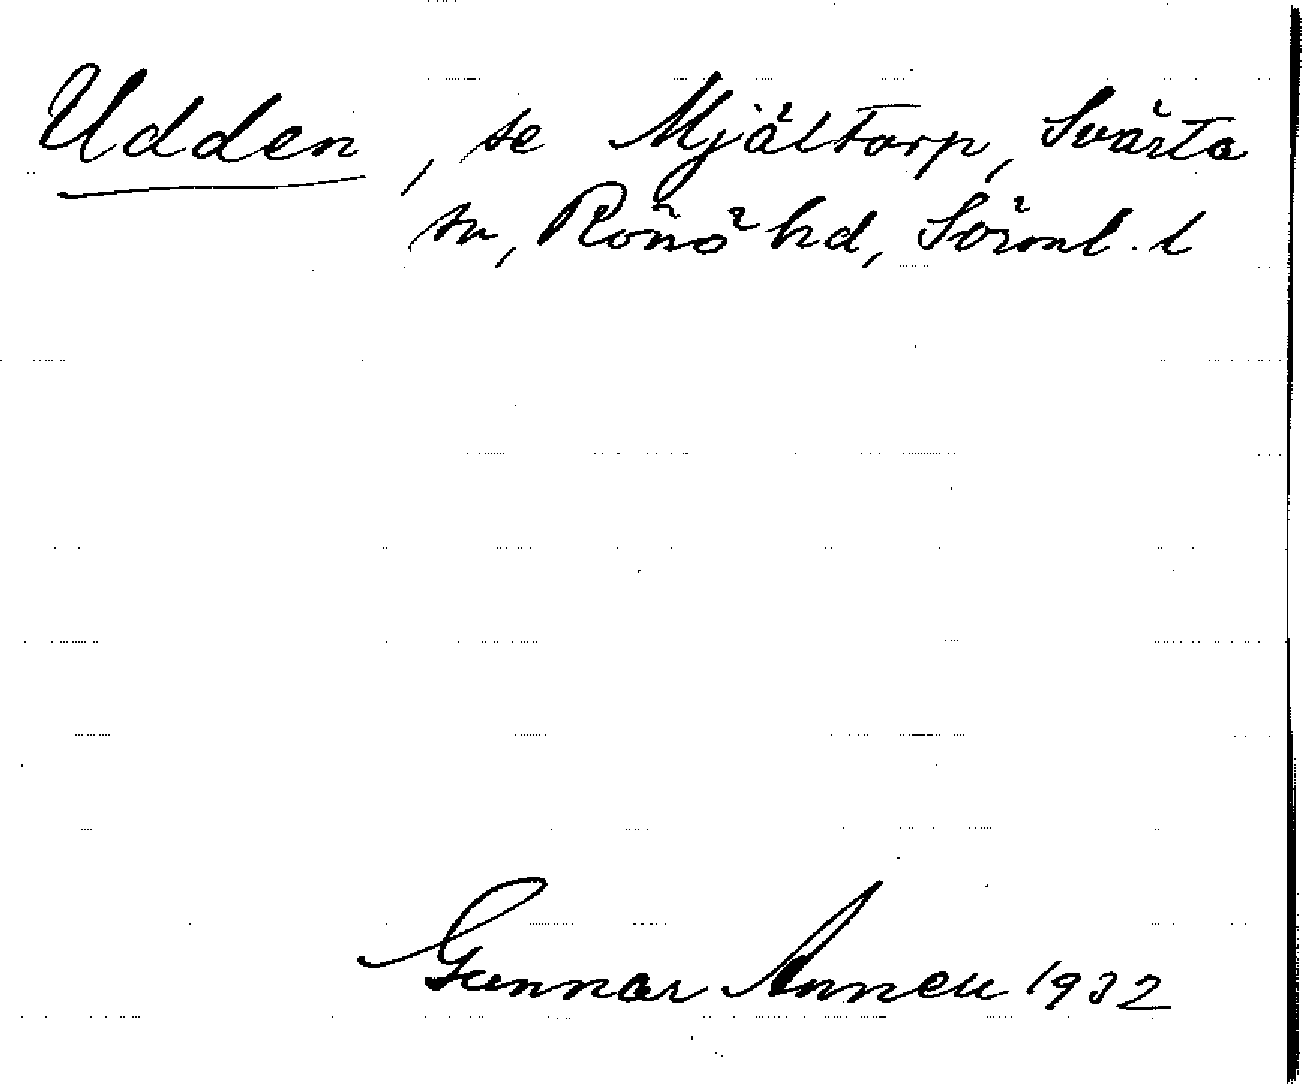 Udden, se Mjältorp, Svärta
sn, Rönö hd, Sörml. l
Gunnar Annell 1932